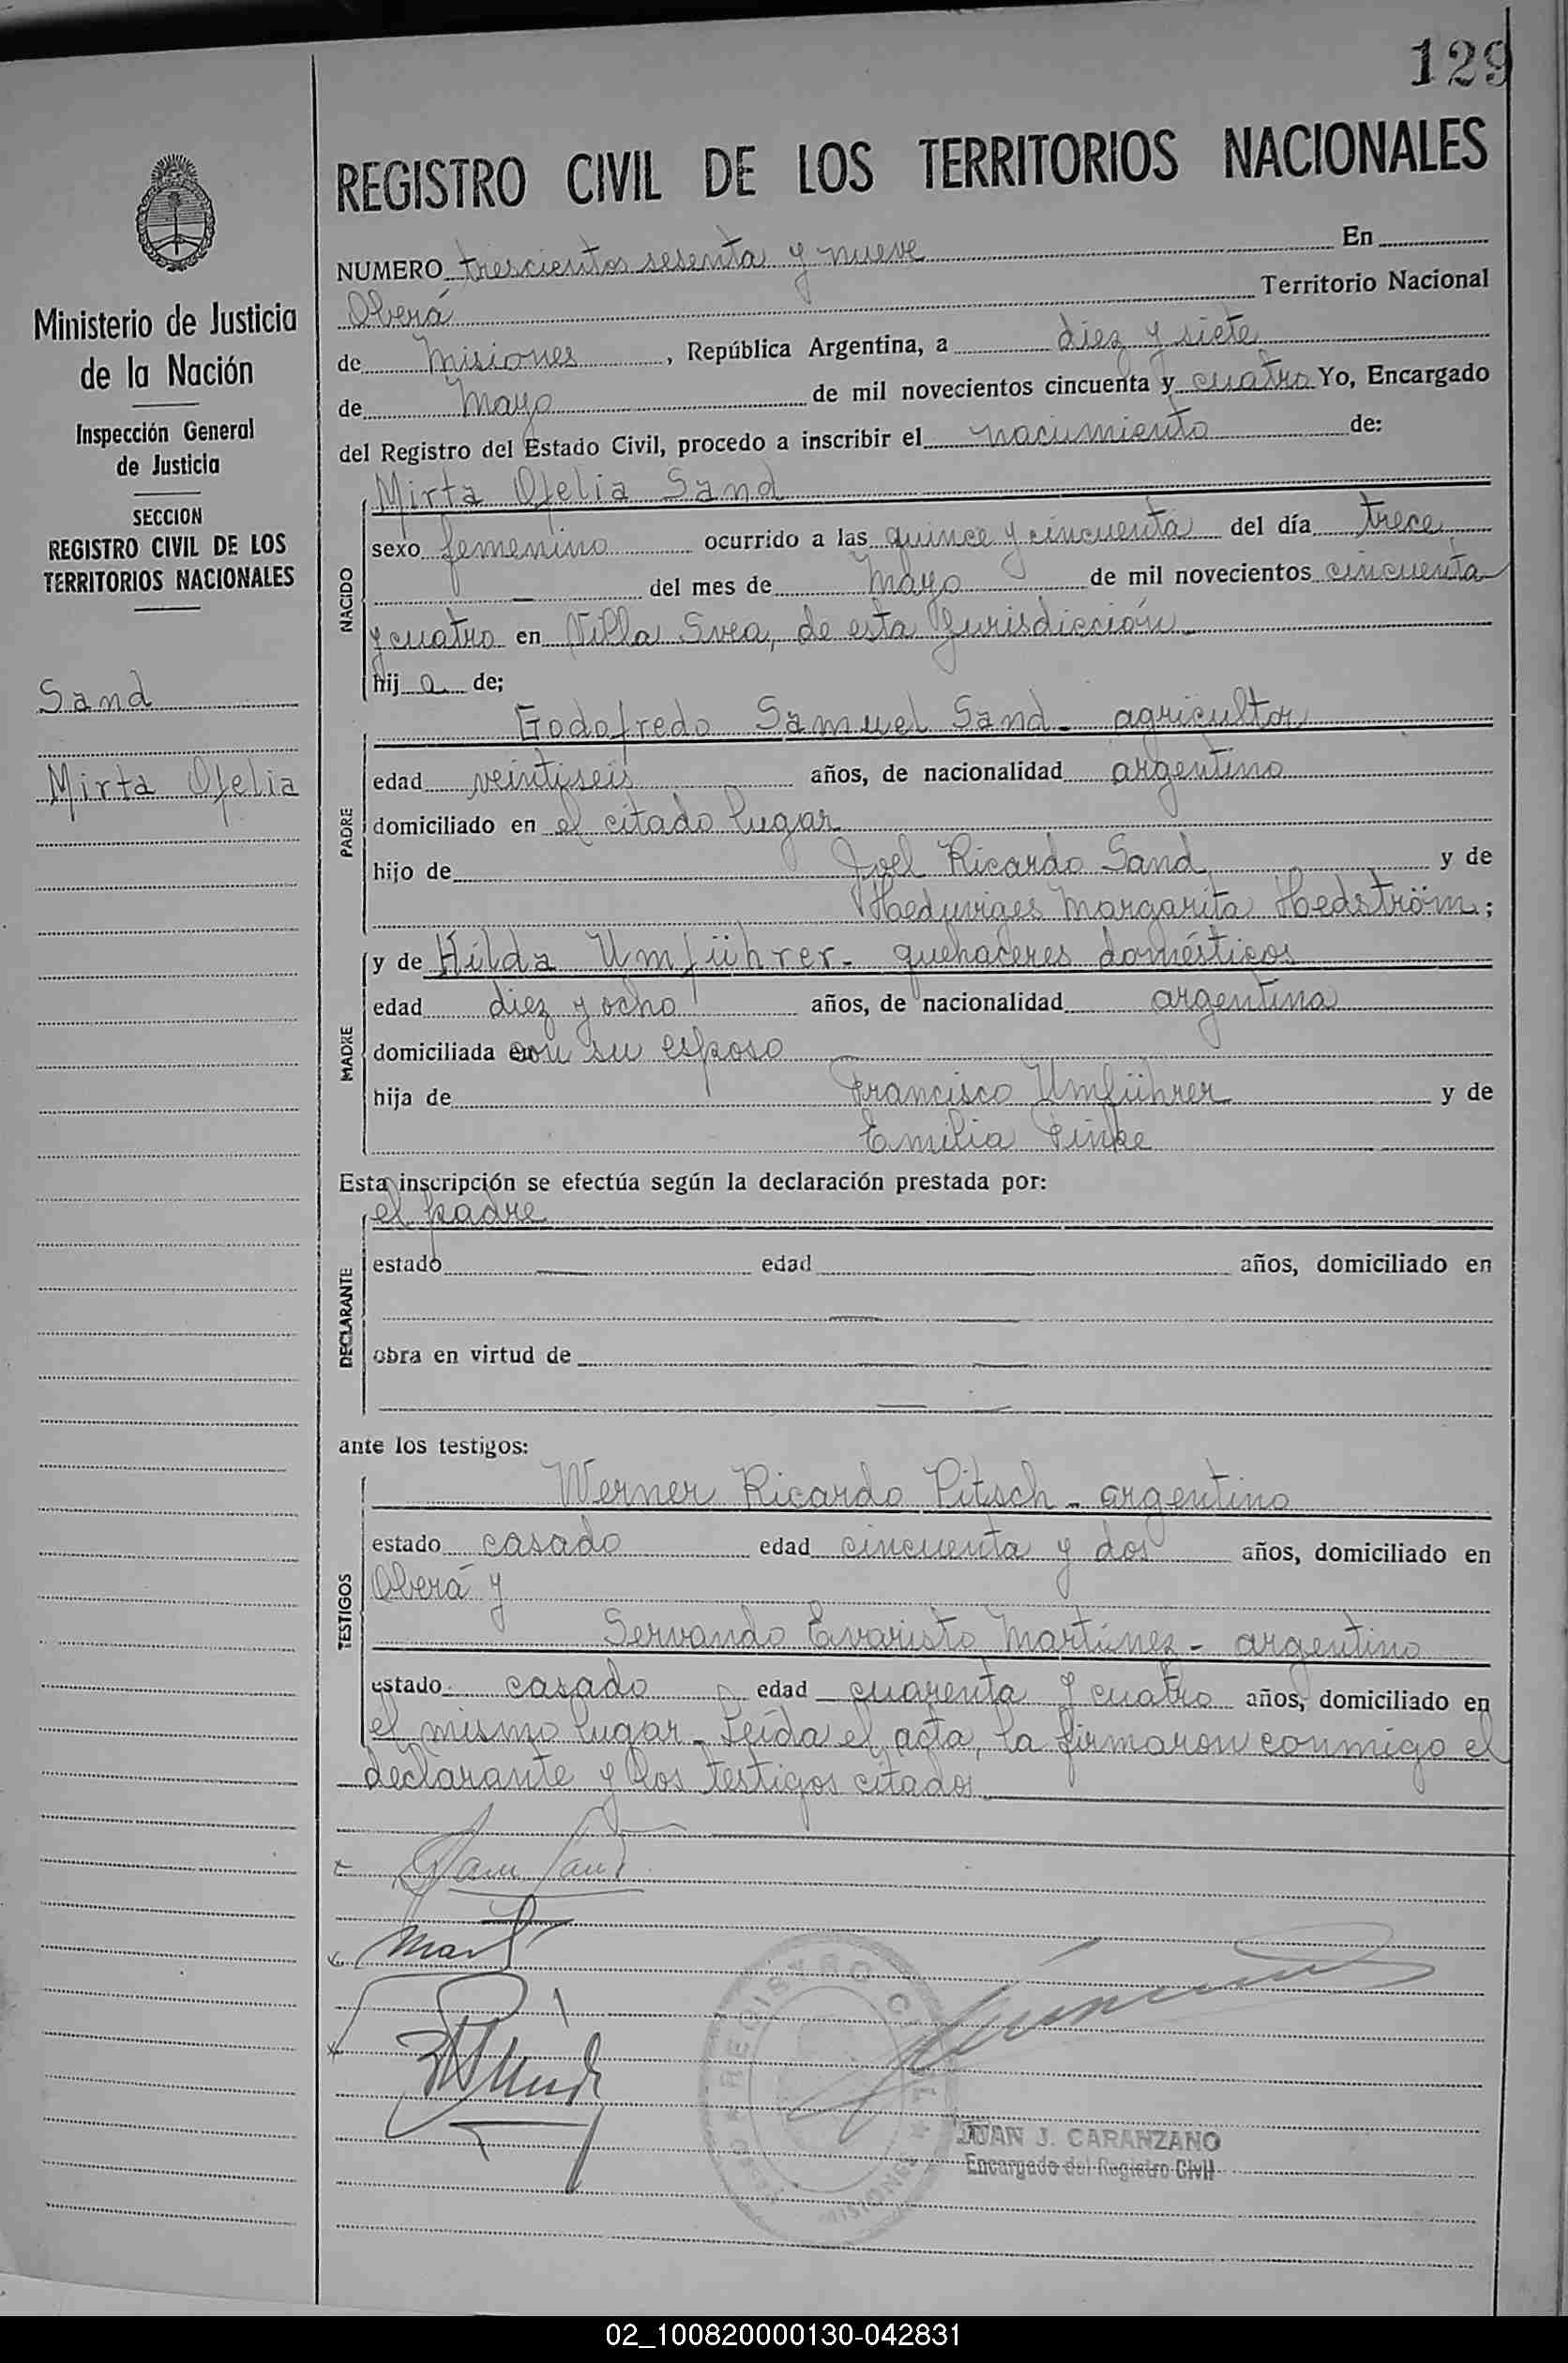 129
REGISTRO CIVIL DE LOS TERRITORIOS NACIONALES
Ministerio de Justicia
de la Nación
Inspección General
de Justicia
SECCION
REGISTRO CIVIL DE LOS
TERRITORIOS NACIONALES
Sand
Mirta Ofelia
NUMERO trescientos sesenta y nueve En
Oberá Territorio Nacional
de Misiones, República Argentina, a diez y siete
de Mayo de mil novecientos cincuenta y cuatro Yo, Encargado
del Registro del Estado Civil, procedo a inscribir el nacimiento de:
NACIDO
Mirta Ofelia Sand
sexo femenino ocurrido a las quince y cincuenta del día trece
— del mes de Mayo de mil novecientos cincuenta
y cuatro en Villa Svea, de esta Jurisdicción.
hij a de;
PADRE
Godofredo Samuel Sand - agricultor
edad veintiseis años, de nacionalidad argentino
domiciliado en el citado lugar
hijo de Joel Ricardo Sand y de
Heduviges Margarita Hedström;
MADRE
y de Hilda Umführer - quehaceres domésticos
edad diez y ocho años, de nacionalidad argentina
domiciliada con su esposo
hija de Francisco Umführer y de
Emilia Finke
Esta inscripción se efectúa según la declaración prestada por:
DECLARANTE
el padre
estado — edad — años, domiciliado en
— —
obra en virtud de — —
— —
ante los testigos:
TESTIGOS
Werner Ricardo Pitsch - argentino
estado casado edad cincuenta y dos años, domiciliado en
Oberá y
Servando Evaristo Martínez - argentino
estado casado edad cuarenta y cuatro años, domiciliado en
el mismo lugar. Leída el acta, la firmaron conmigo el
declarante y los testigos citados
REGISTRO CIVIL
MISIONES
JUAN J. CARANZANO
Encargado del Registro Civil
02_100820000130-042831